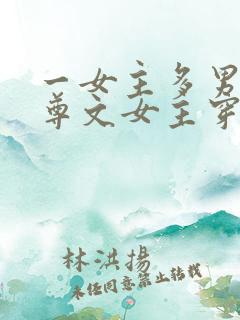 一女主多男
尊文女主穿
林洪揚
未经同意禁止转载